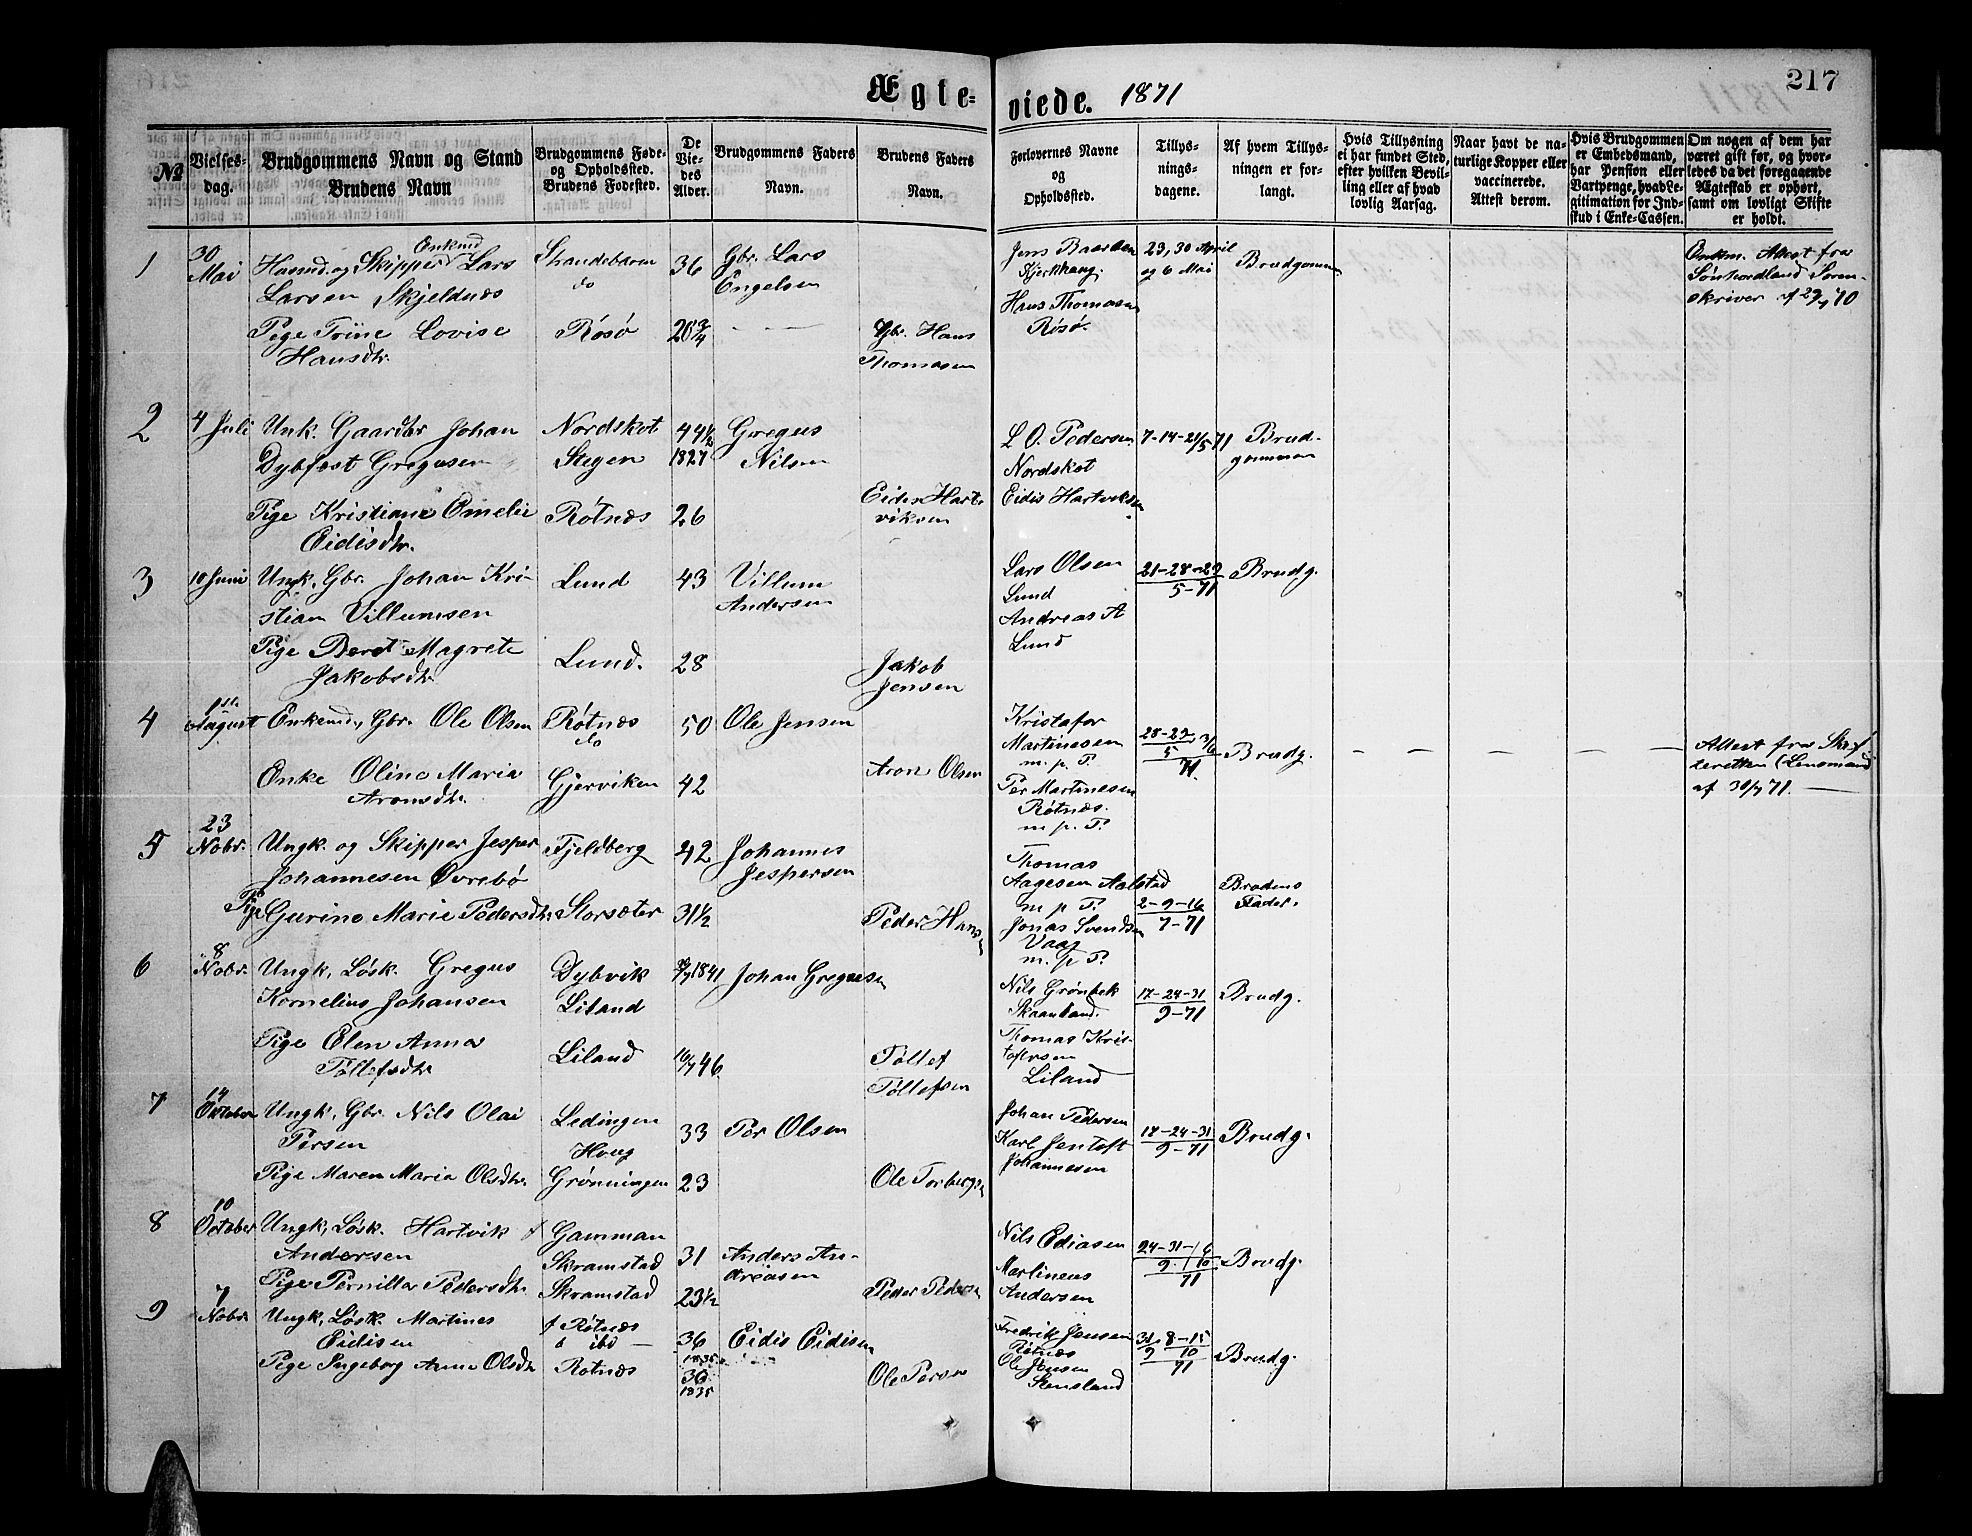 Ægte-
viede. 1871
217
№
Vielses-
dag.
Brudgommens Navn og Stand
Brudens Navn
Brudgommens Føde-
og Opholdssted.
Brudens Fødested.
De
Vie-
des
Alder.
Brudgommens Faders
Navn.
Brudens Faders
Navn.
Forlovernes Navne
og
Opholdssted.
Tillys-
nings-
dagene.
Af hvem Tillys-
ningen er for-
langt.
Hvis Tillysning
ei har fundet Sted,
efter hvilken Bevil-
ling eller af hvad
lovlig Aarsag.
Naar havt de na-
turlige Kopper eller
vaccinerede.
Attest derom.
Hvis Brudgommen
er Embedsmand,
har Pension eller
Vartpenge, hvad Le-
gitimation for Ind-
skud i Enke-Cassen.
Om nogen af dem har
været gift før, og hvor-
ledes da det foregaaende
Ægteskab er ophørt,
samt om lovligt Skifte
er holdt.
1
30
Mai
Enkemd
Husmd. og Skipper Lars
Larsen Skjeldnæs
Strandebarm
do
36
Gbr. Lars
Engelsen
Pige Trine Lovise
Hansdtr.
Rösö
20 3/4
Gbr. Hans
Thomasen
Jens Baarsen
Kjerkhaug.
Hans Thomasen
Rösö.
23, 30 April
og 6 Mai
Brudgommen
Enkm. Attest fra
Søndhordland Soren-
skriver af 29/4 70
2
4 Juli
Unk. Gaardbr Johan
Dybfest Gregusen
Nordskot
Stegen
44 1/2
1827
Gregus
Nilsen
Pige Kristiane Emelie
Eidisdtr.
Rötnæs
26
Eidis Hart-
viksen
L O. Pedersen
Nordskot
Eidis Hartviksen
7-14-21/5 71
Brud-
gommen
3
10 Juni
Ungk, Gbr. Johan Kri-
stian Villumsen
Lund
43
Villum
Andersen
Pige Beret Magrete
Jakobsdtr
Lund.
28
Jakob
Jensen
Lars Olsen
Lund
Andreas A
Lund
21-28-29
5-71
Brudg.
4
1ste
August
Enkemd, Gbr. Ole Olsen
Rötnæs
do
50
Ole Jensen
Enke Oline Maria
Aronsdtr.
Gjerviken
42
Aron Olsen
Kristafor
Martinesen
m. p. P.
Per Martinesen
Rötnæs.
m. p. P.
28-29 3/6
5
71
Brudg.
Attest fra Skif-
teretten (Lensmand
af 30/7 71.
5
23
Nobr.
Ungk. og Skipper Jesper
Johannesen Øvrebö
Fjeldberg
42
Johannes
Jespersen
Pige
Gurine Marie Pedersdtr
Storsæter
31 1/2
Peder Hansen
Thomas
Aagesen Aalstad
m p P.
Jonas Svendsen
Vaag
m. p P.
2-9-16
7-71
Brudens
Fader.
6
8
Nobr.
Ungk, Løsk. Gregus
Kornelius Johansen
Dybvik
Liland
1841
Johan Gregusen
Pige Elen Anna
Töllefsdtr
Liland
16/7 46
Töllef
Töllefsen
Nils Grönbek
Skaanland.
Thomas Kris-
tofersen
Liland
17-24-31
9-71
Brudg.
7
14
Oktober
Ungk, Gbr. Nils Olai
Persen
Ledingen
Houg
33
Per Olsen
Pige Maren Maria Olsdtr.
Grönningen
23
Ole Torbergsen
Johan Pedersen
Karl Jentoft
Johannesen
18-24-31
9-71
Brudg.
8
10
October
Ungk, Løsk. Hartvik
Andersen
f Gamman
Skramstad
31
Anders An-
dreasen
Pige Pernilla Pedersdtr
Skramstad
23 1/2
Peder Pedersen
Nils Ediasen
Martineus
Andersen
24-31-1 6
9. 10
71
Brudg.
9
7
Nobr.
Ungk, Løsk. Martines
Eidisen
f Rötnæs
o ibd —
36
1835
Eidis Eidisen
Pige Ingeborg Anne Olsdtr
Rötnæs
36
1835
Ole Persen
Fredrik Jensen
Rötnæs
Ole Jensen
Stensland
31 8-15
9 10
71
Brudg.